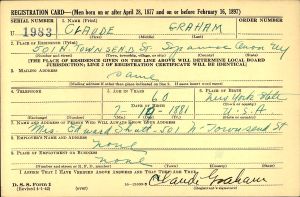 REGISTRATION CARD—(Men born on or after April 28, 1877 and on or before February 16, 1897)
SERIAL NUMBER 1. NAME (Print) ORDER NUMBER
U 1983 CLAUDE GRAHAM
(First) (Middle) (Last)
2. PLACE OF RESIDENCE (Print)
501 N TOWNSEND St. Syracuse Onon NY
(Number and street) (Town, township, village, or city) (County) (State)
[THE PLACE OF RESIDENCE GIVEN ON THE LINE ABOVE WILL DETERMINE LOCAL BOARD
JURISDICTION; LINE 2 OF REGISTRATION CERTIFICATE WILL BE IDENTICAL]
3. MAILING ADDRESS
Same
4. TELEPHONE 5. AGE IN YEARS 6. PLACE OF BIRTH
60 New York State
DATE OF BIRTH
1881 U.S.A.
(Mo.) (Day) (Yr.) (State or country)
7. NAME AND ADDRESS OF PERSON WHO WILL ALWAYS KNOW YOUR ADDRESS
Mrs. Edward 501 N. Townsend St
8. EMPLOYER'S NAME AND ADDRESS
none
9. PLACE OF EMPLOYMENT OR BUSINESS
none
(Number and street or R. F. D. number) (Town) (County) (State)
I AFFIRM THAT I HAVE VERIFIED ABOVE ANSWERS AND THAT THEY ARE TRUE.
D. S. S. Form 1
(Revised 4-1-42) Claude Graham